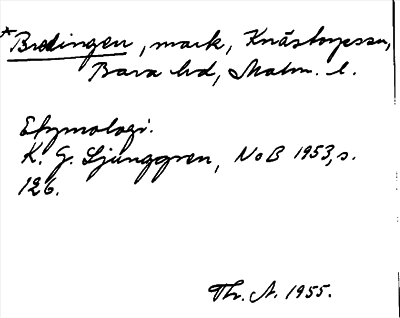 *Bredingen, mark, Knästorpssn,
Bara hd, Malm. l.
Etymologi:
K. G. Ljunggren, NoB 1953, s.
126.
Th. A. 1955.